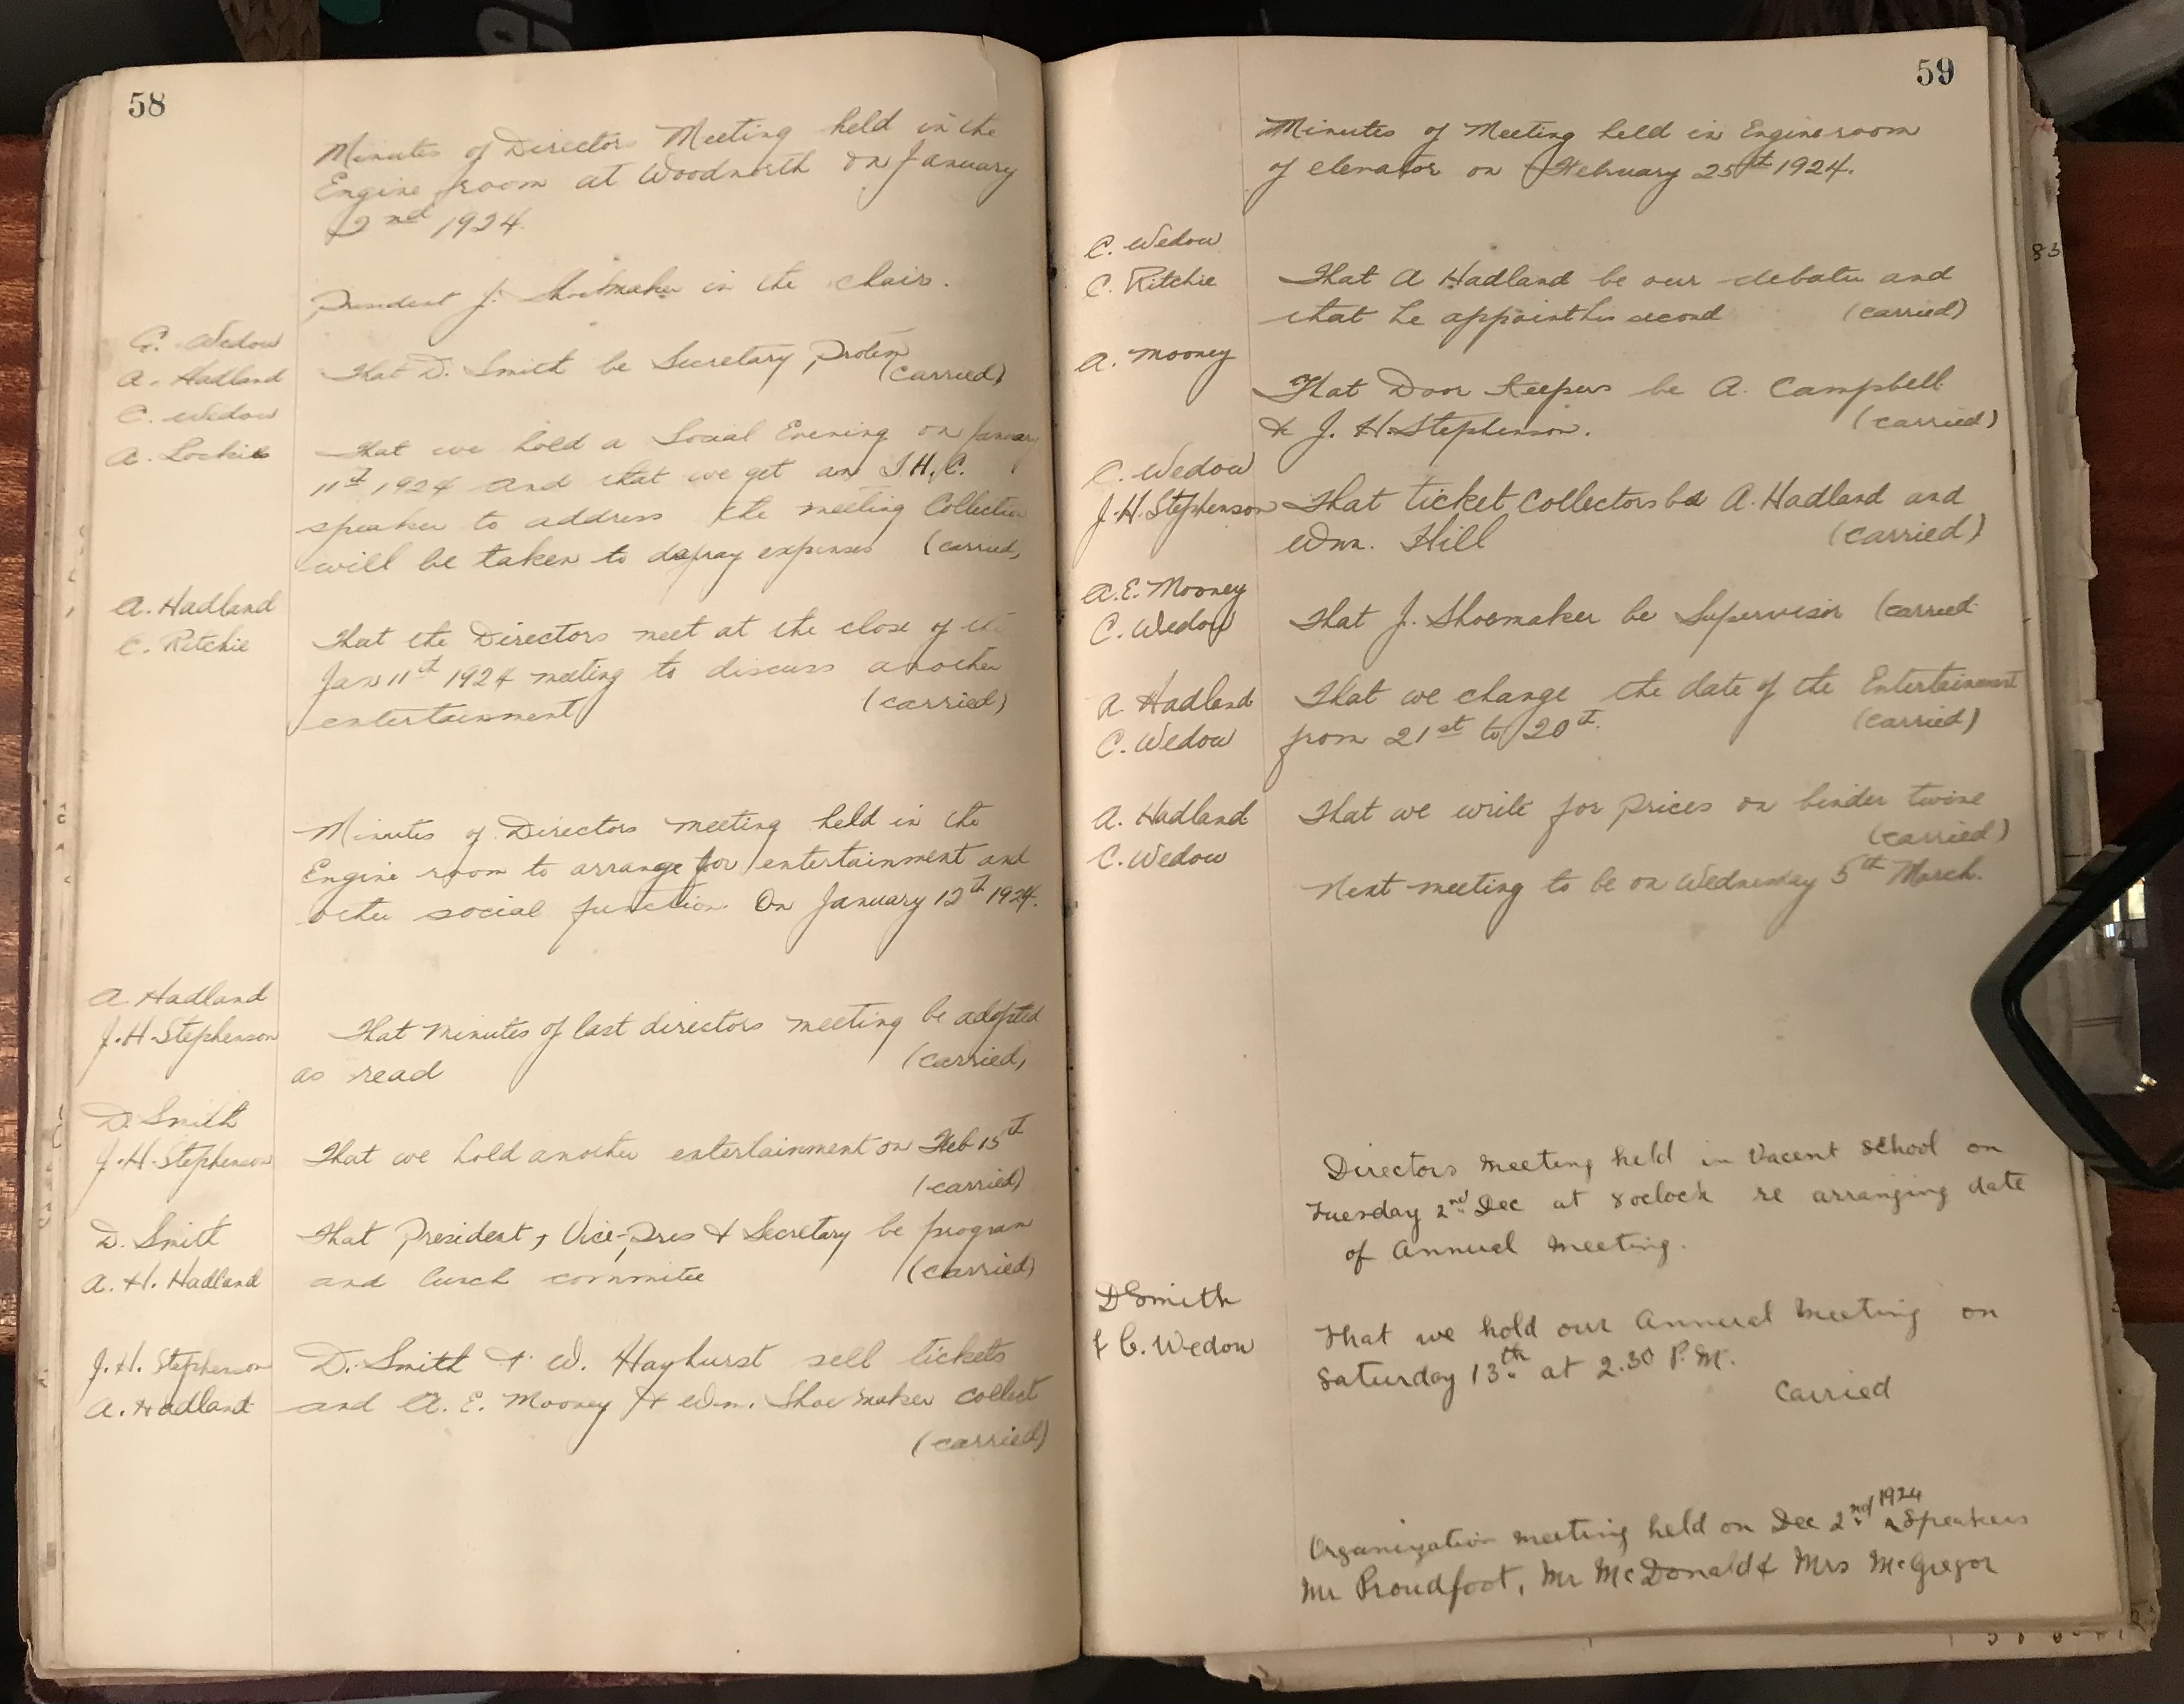 58
Minutes of Directors Meeting held in the
Engine room at Woodnorth on January
2nd 1924.
President J. Shoemaker in the chair.
C. Wedow
A. Hadland
That D. Smith be Secretary, Protem
(carried)
C. Wedow
A. Lockie
That we hold a Social Evening on January
11th 1924 and that we get an I.H.C.
speaker to address the meeting Collection
will be taken to defray expenses (carried)
A. Hadland
C. Ritchie
That the Directors meet at the close of the
Jan 11th 1924 meeting to discuss another
entertainment (carried)
Minutes of Directors meeting held in the
Engine room to arrange for entertainment and
other social function. On January 12th 1924.
A Hadland
J.H. Stephenson
That minutes of last directors meeting be adopted
as read (carried)
D. Smith
J.H. Stephenson
That we hold another entertainment on Feb 15th
(carried)
D. Smith
A. H. Hadland
That President, Vice-Pres & Secretary be program
and lunch commitee (carried)
J.H. Stephenson
A. Hadland
D. Smith & W. Hayhurst sell tickets
and A. E. Mooney & Wm. Shoemaker collect
(carried)
59
Minutes of Meeting held in Engineroom
of elevator on February 25th 1924.
C. Wedow
C. Ritchie
That A Hadland be our debater and
that he appoint his second (carried)
A. Mooney
That Door Keepers be A. Campbell
& J. H. Stephenson. (carried)
C. Wedow
J.H. Stephenson
That ticket Collectors be A. Hadland and
Wm. Hill (carried)
A.E. Mooney
C. Wedow
That J. Shoemaker be Supervisor (carried
A Hadland
C. Wedow
That we change the date of the Entertainment
from 21st to 20th. (carried)
A. Hadland
C. Wedow
That we write for prices on binder twine
(carried)
Next meeting to be on Wednesday 5th March.
Directors meeting held in Vacent school on
Tuesday 2nd Dec at 8 oclock re arranging date
of Annual Meeting.
D Smith
& C. Wedow
That we hold our Annual Meeting on
Saturday 13th at 2.30 P.M.
Carried
Organization meeting held on Dec 2nd 1924 Speakers
Mr Proudfoot, Mr McDonald & Mrs McGregor
83